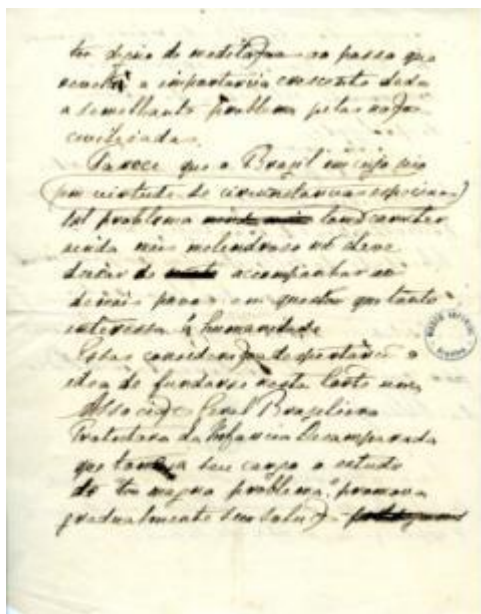 tão digno de meditação ao passo que
revela a importancia crescente dada
a semelhante problema pelas nações
civilisadas.
Parece que o Brazil em cujo seio
(em virtude de circunstancias especiaes)
tal problema toma caracter
ainda mais melindroso não deve
deixar de acompanhar os
demais povos em questão que tanto
interessa á humanidade
Estas considerações despertarão a
idea de fundar-se nesta Corte uma
Associação Geral Brazileira
Protectora da Infancia Desamparada
que tome a seu cargo o estudo
de tão magno problema, promova
gradualmente sua solução